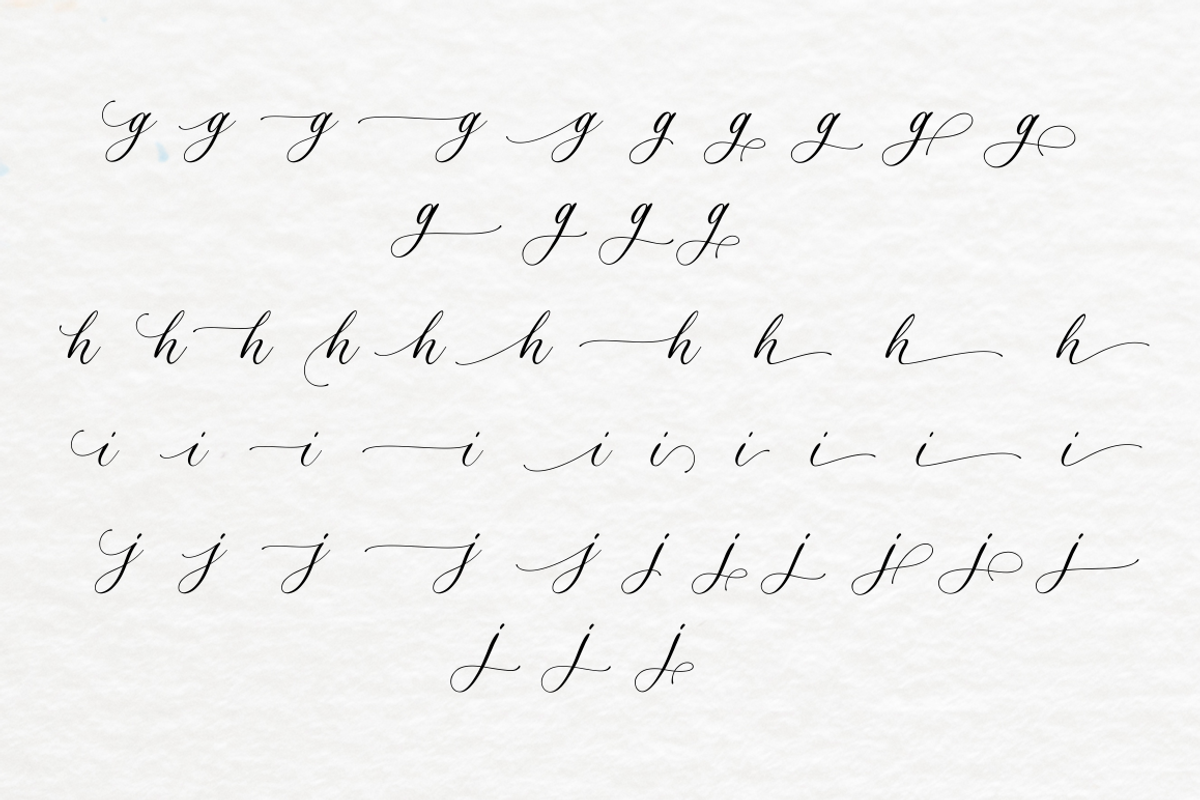 g g g g g g g g g g
g g g g
h h h h h h h h h h
i i i i i i i i i i
j j j j j j j j j j j
j j j